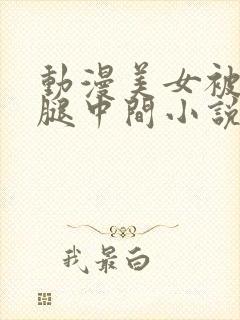 動漫美女被
腿中間小說
我最白